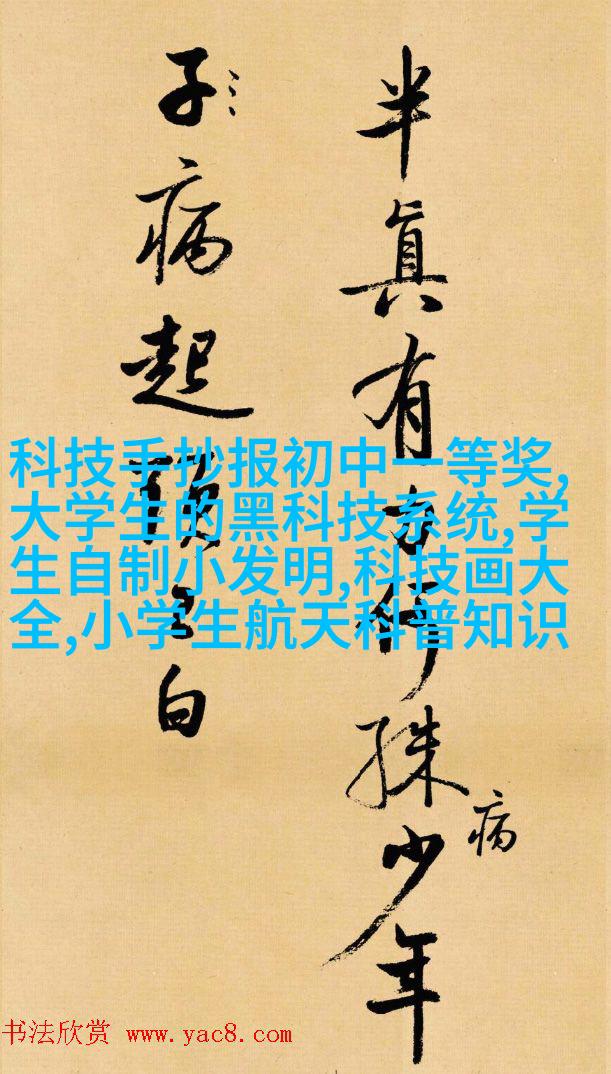 半眞有力何殊病少年
子病起須已白
科技手抄报初中一等奖,
大学生的黑科技系统,学
生自制小发明,科技画大
全,小学生航天科普知识
书法欣赏 www.yac8.com